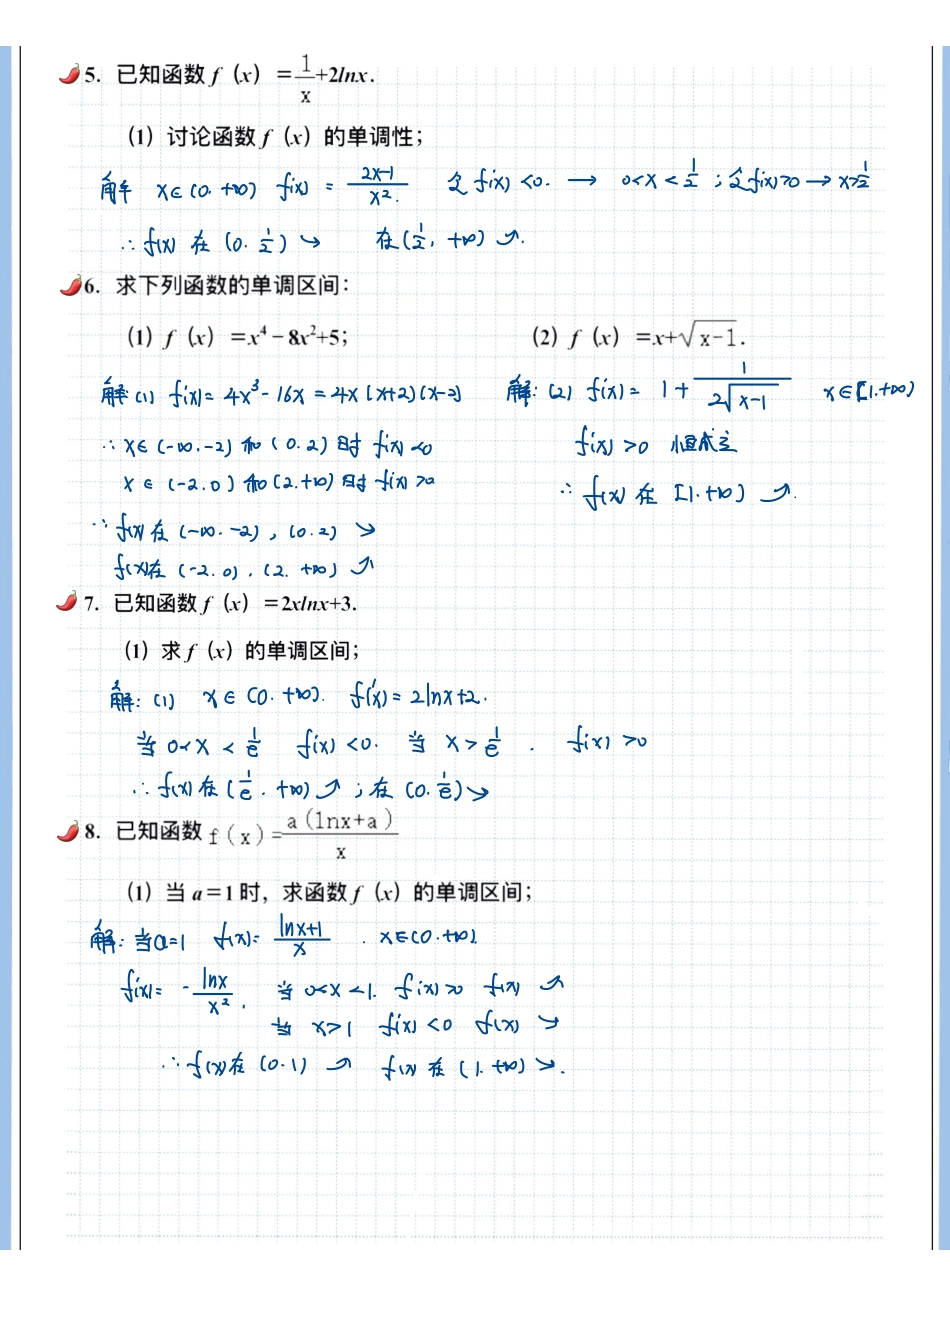 5. 已知函数 f（x）＝1/x+2lnx.
（1）讨论函数 f（x）的单调性；
解 x∈(0.+∞) f'(x) = 2x-1/x². 令 f'(x)<0. → 0<x<1/2 ; 令f'(x)>0 → x>1/2
∴ f(x) 在 (0. 1/2) ↘ 在(1/2. +∞) ↗.
6. 求下列函数的单调区间：
（1）f（x）＝x⁴－8x²+5； （2）f（x）＝x+√x-1.
解:(1) f'(x)= 4x³-16x = 4x(x+2)(x-2) 解:(2) f'(x)= 1+ 1/2√x-1 x∈[1.+∞)
∴ x∈(-∞.-2) 和 (0.2) 时 f'(x)<0 f'(x)>0 恒成立
x∈(-2.0) 和(2.+∞) 时 f'(x)>0 ∴ f(x) 在 [1.+∞) ↗.
∴ f(x)在 (-∞.-2), (0.2) ↘
f(x)在 (-2.0). (2. +∞) ↗
7. 已知函数 f（x）＝2xlnx+3.
（1）求 f（x）的单调区间；
解:(1) x∈(0.+∞). f'(x)= 2lnx+2.
当 0<x<1/e f'(x)<0. 当 x>1/e . f'(x)>0
∴ f(x)在(1/e.+∞)↗ ; 在 (0.1/e)↘
8. 已知函数 f(x)=a(lnx+a)/x
（1）当 a＝1 时，求函数 f（x）的单调区间；
解: 当a=1 f(x)= lnx+1/x . x∈(0.+∞).
f'(x)= -lnx/x². 当 0<x<1. f'(x)>0 f(x) ↗
当 x>1 f'(x)<0 f(x) ↘
∴ f(x)在 (0.1) ↗ f(x)在 (1.+∞) ↘.